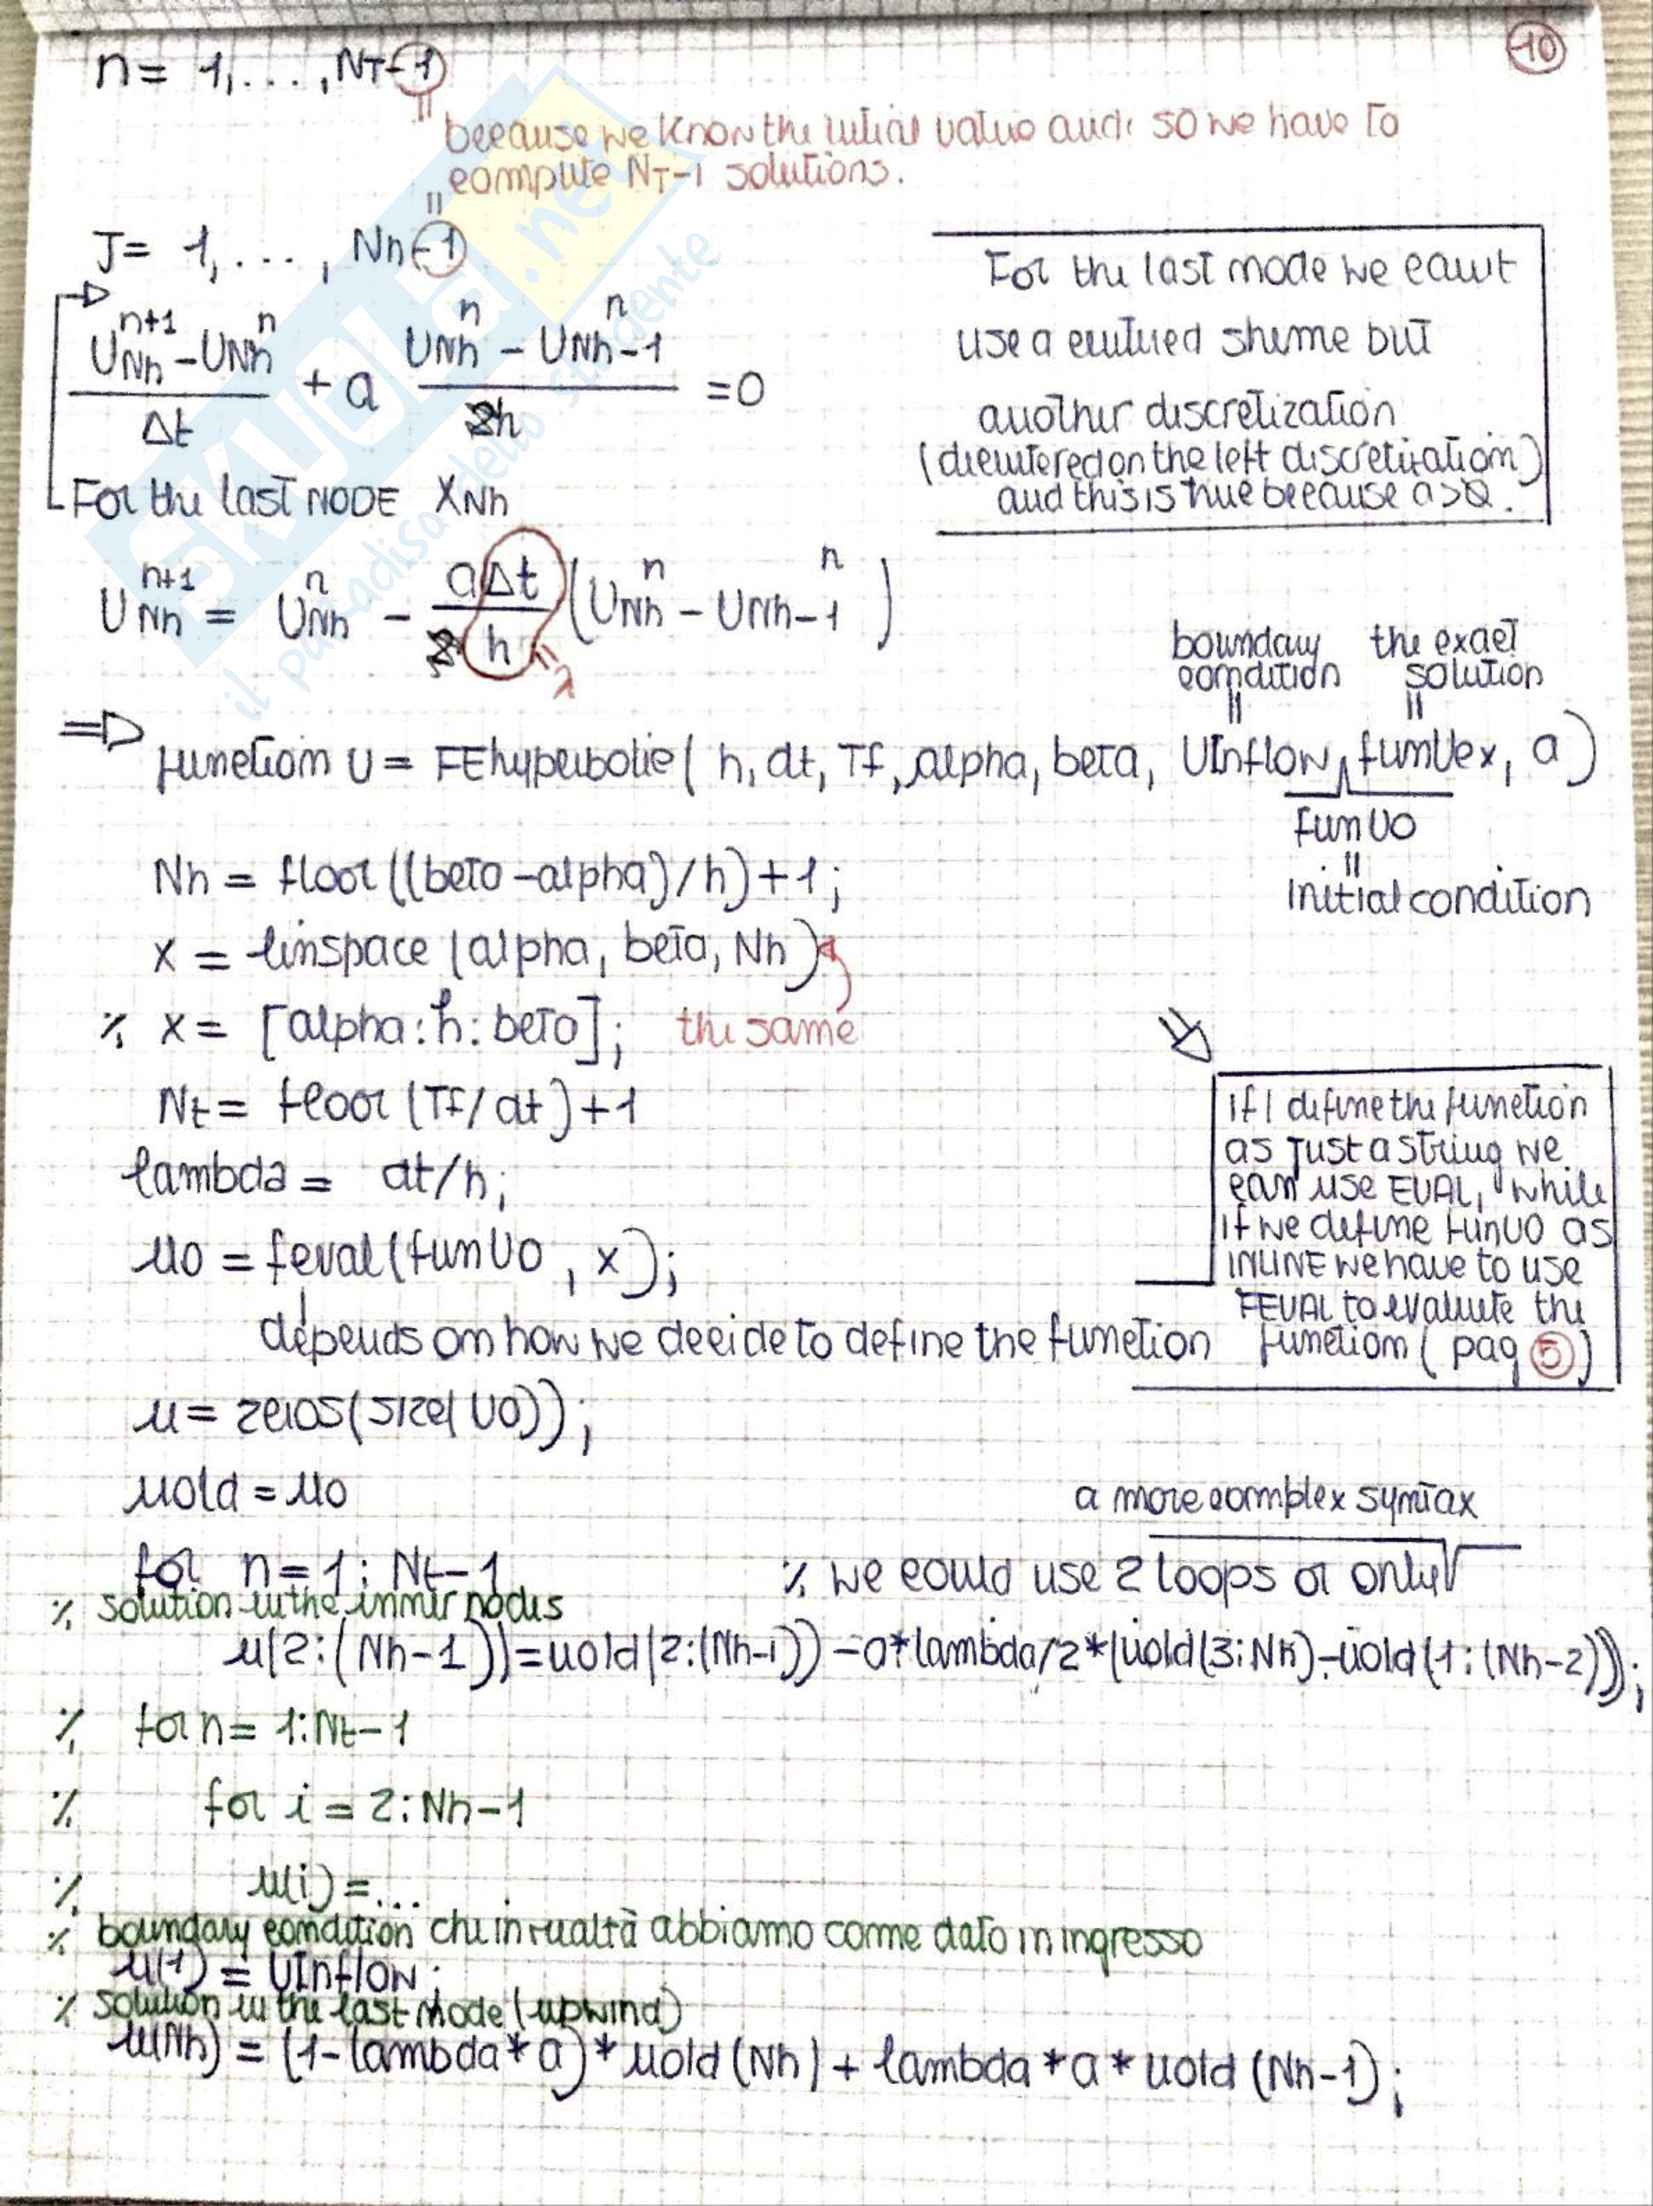 10
n = 1, ..., NT-1
because we know the initial value and so we have to
compute NT-1 solutions.
J = 1, ..., Nh-1
For the last node we can't
use a centered sheme but
another discretization
(decentered on the left discretization)
and this is true because a>0.
(U_Nh^{n+1} - U_Nh^n)/Δt + a (U_Nh^n - U_{Nh-1}^n)/h = 0
For the last NODE XNh
U_Nh^{n+1} = U_Nh^n - aΔt/h (U_Nh^n - U_{Nh-1}^n)
= λ
boundary condition
the exact solution
=> function U = FEhyperbolic( h, dt, Tf, alpha, beta, UInflow, funUex, a)
funU0
initial condition
Nh = floor((beta-alpha)/h)+1;
x = linspace(alpha, beta, Nh)
% x = [alpha:h:beta]; the same
Nt = floor(Tf/dt)+1
lambda = dt/h;
u0 = feval(funU0, x);
depends on how we decide to define the function
If I define the function
as just a string we
can use EVAL, while
if we define funU0 as
INLINE we have to use
FEVAL to evaluate the
function (pag 5)
u = zeros(size(U0));
uold = u0
a more complex syntax
for n=1:Nt-1 % we could use 2 loops or only
% solution in the inner nodes
u(2:(Nh-1))=uold(2:(Nh-1))-a*lambda/2*(uold(3:Nh)-uold(1:(Nh-2)));
% for n= 1:Nt-1
% for i = 2:Nh-1
% u(i) =...
% boundary condition che in realtà abbiamo come dato in ingresso
u(1) = UInflow;
% solution in the last node (upwind)
u(Nh) = (1-lambda*a)*uold(Nh)+lambda*a*uold(Nh-1);
SKUOLA.net
il paradiso dello studente